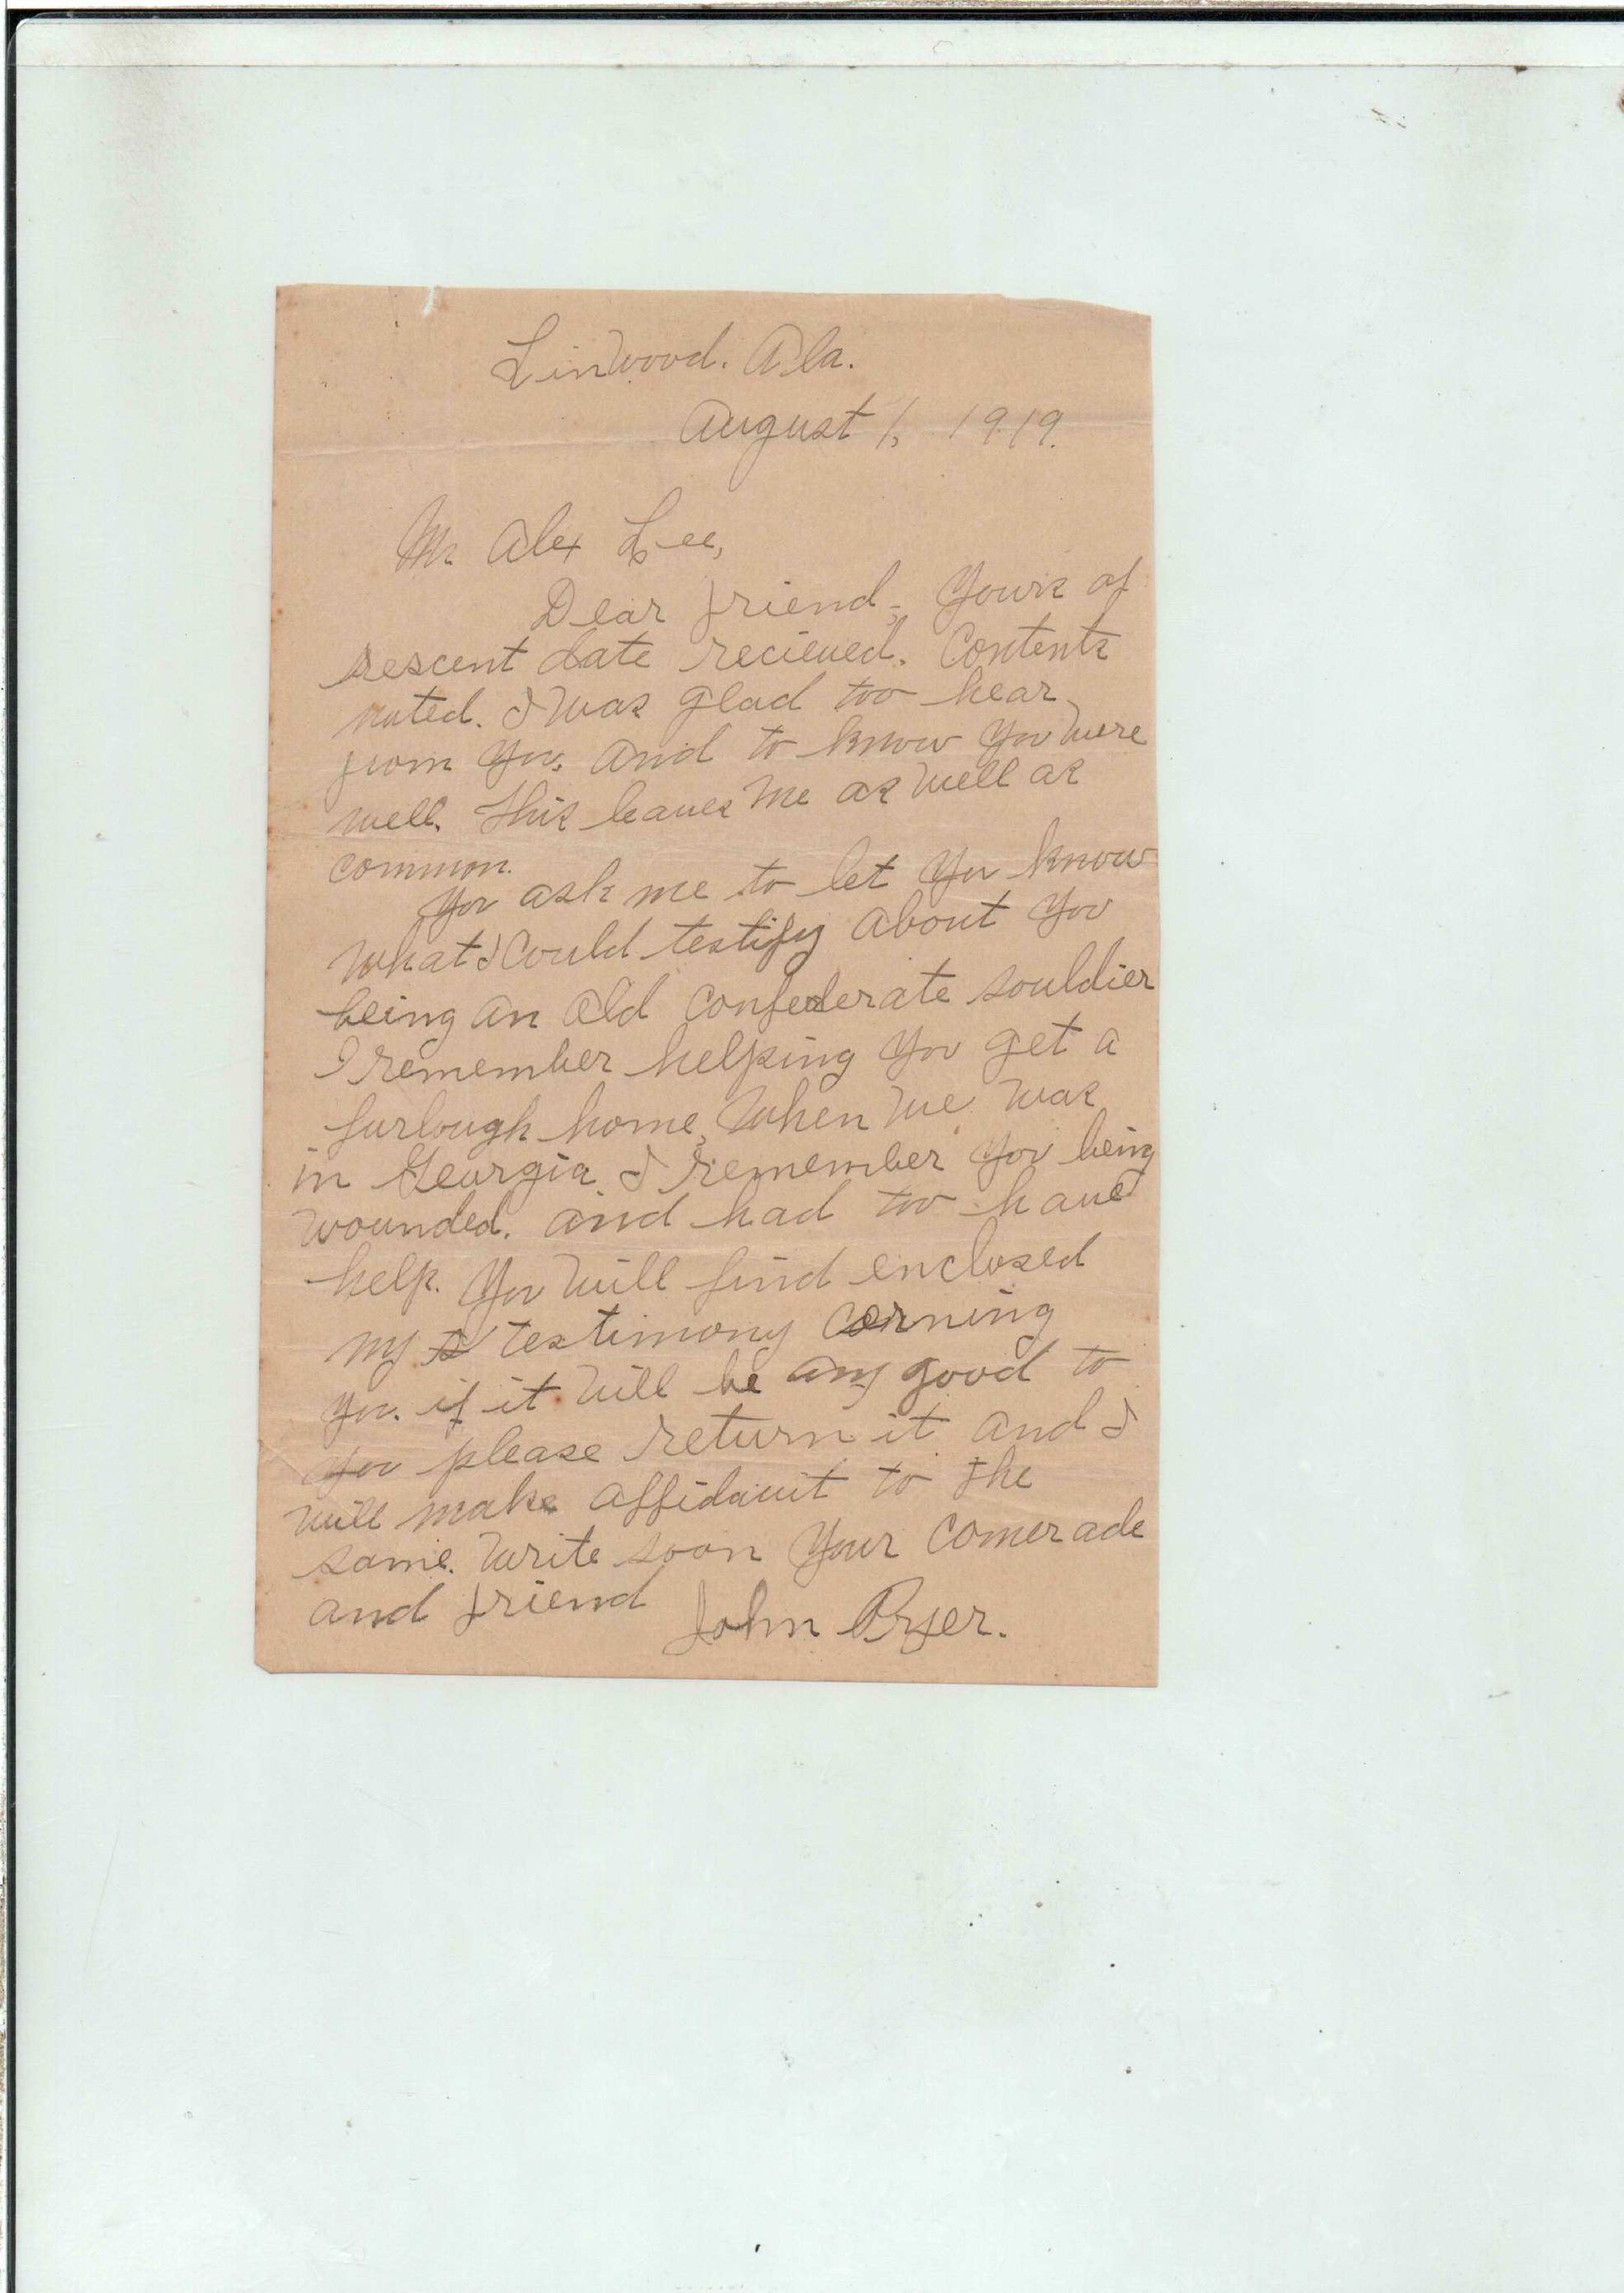 Linwood. Ala.
August 1, 1919.
Mr. Alex Lee,
Dear friend, Yours of
rescent date recieved. Contents
noted. I was glad too hear
from you. and to know you were
well. This leaves me as well as
common.
You ask me to let you know
what I could testify about you
being an old confederate souldier
I remember helping you get a
furlough home, when we was
in Georgia I remember you being
wounded. and had too have
help. You will find enclosed
my testimony corning
you. if it will be any good to
you please return it and I
will make affidavit to the
same. write soon your comerade
and friend
John Pryer.